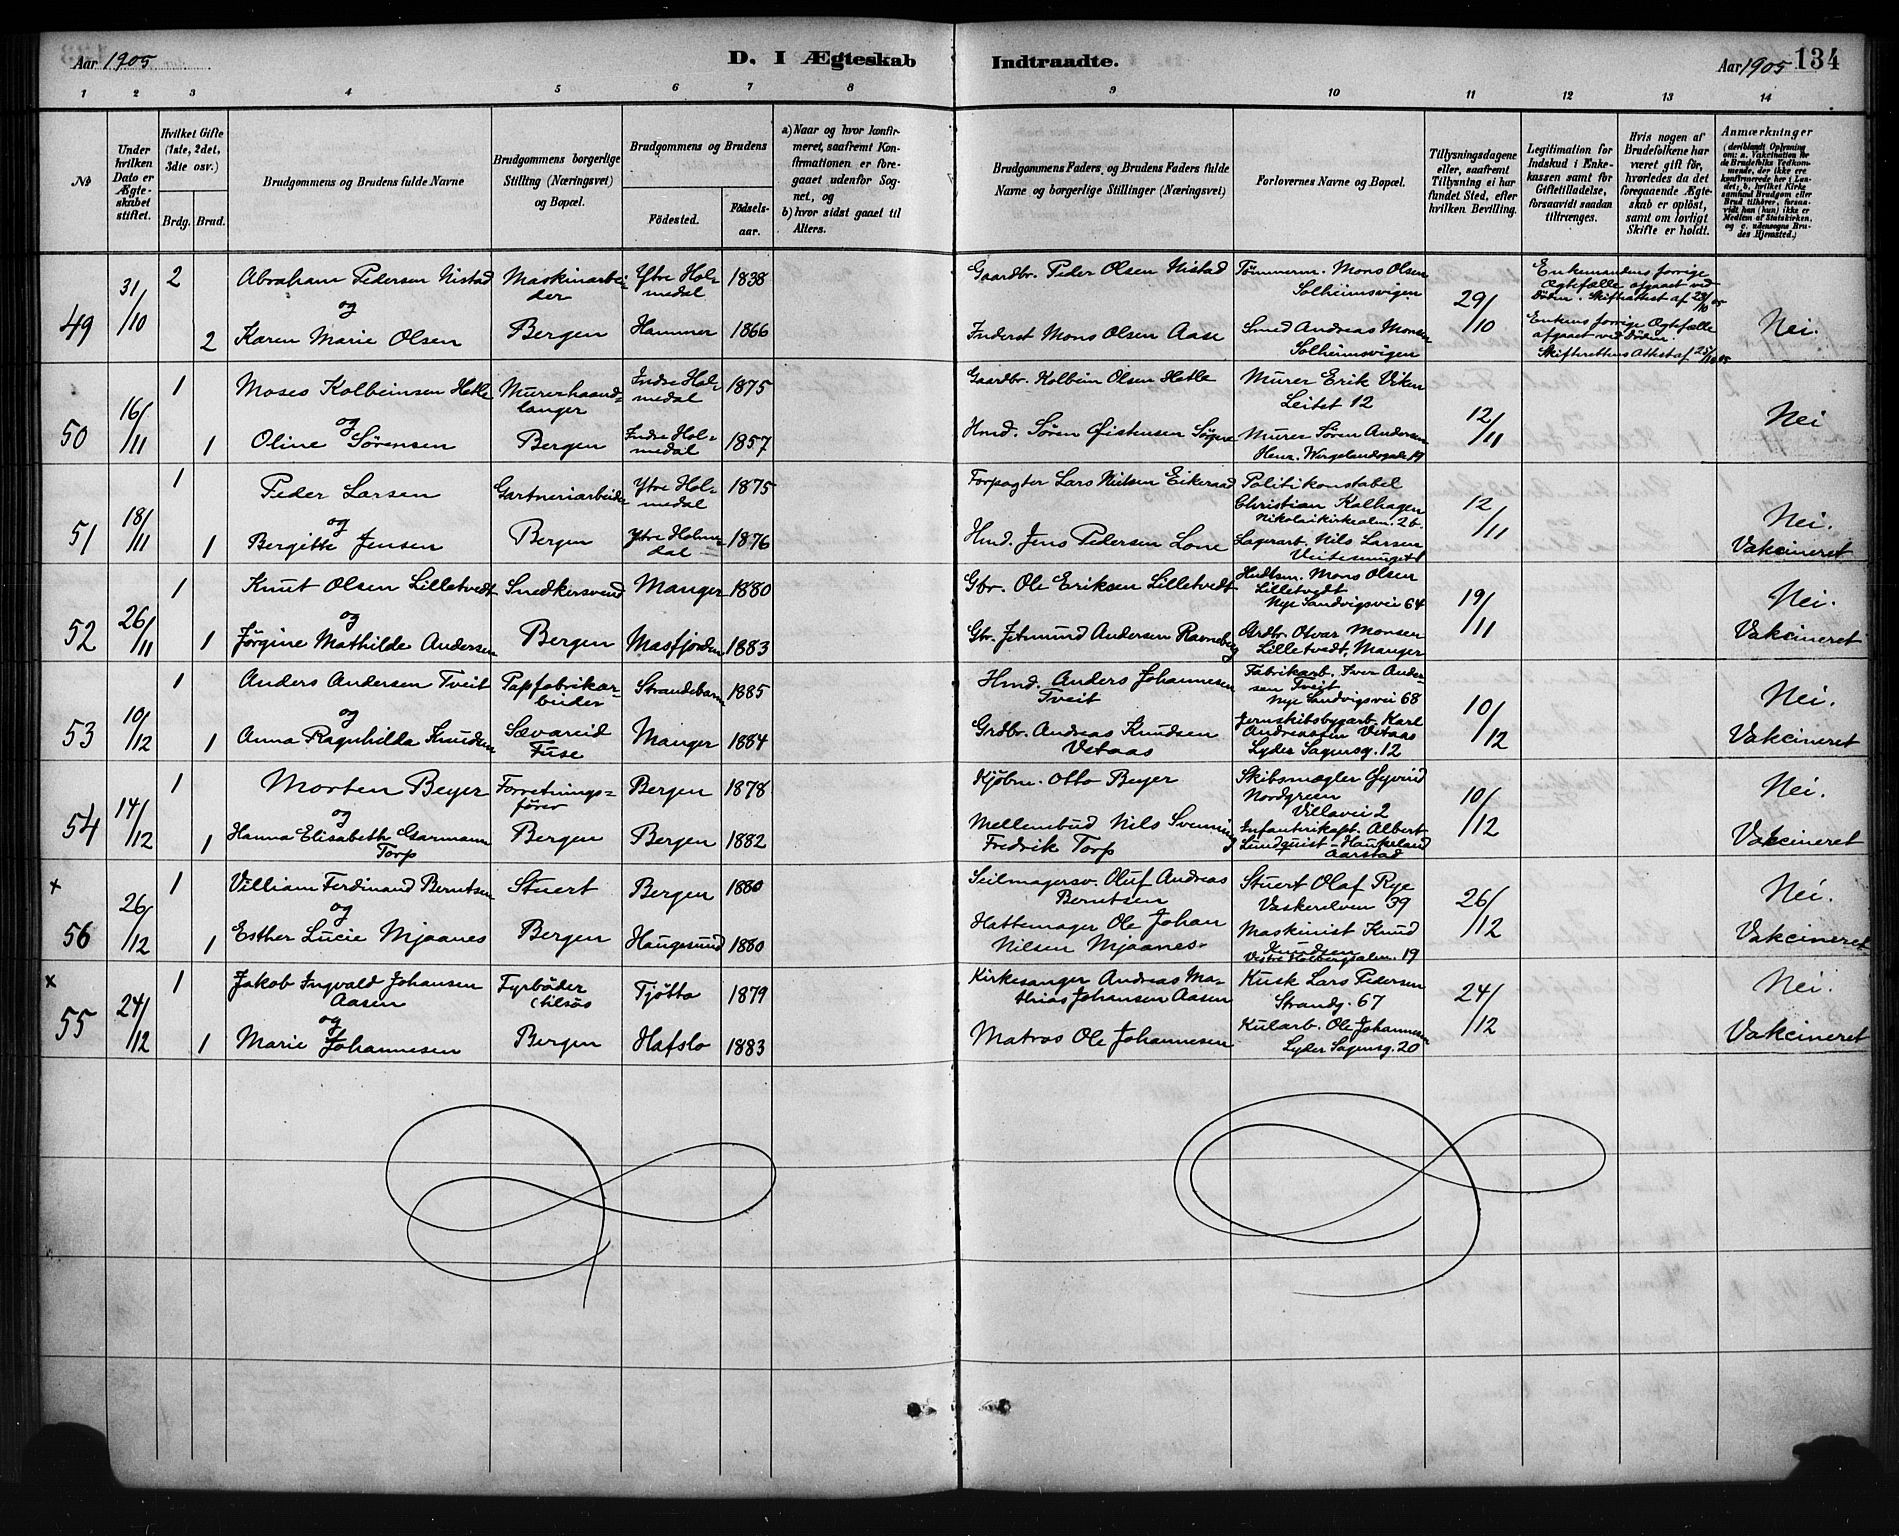 Aar 1905
D. I Ægteskab Indtraadte.
Aar 1905 134
1 2 3 4 5 6 7 8 9 10 11 12 13 14
No
Under hvilken Dato er Ægteskabet stiftet.
Hvilket Gifte (1ste, 2det, 3die osv.)
Brdg. Brud.
Brudgommens og Brudens fulde Navne
Brudgommens borgerlige Stilling (Næringsvei) og Bopæl.
Brudgommens og Brudens
Födested. Födsels-aar.
a) Naar og hvor konfirmeret, saafremt Konfirmationen er foregaaet udenfor Sognet, og
b) hvor sidst gaaet til Alters.
Brudgommens Faders, og Brudens Faders fulde Navne og borgerlige Stillinger (Næringsvei)
Forlovernes Navne og Bopæl.
Tillysningsdagene eller, saafremt Tillysning ei har fundet Sted, efter hvilken Bevilling.
Legitimation for Indskud i Enkekassen samt for Giftetilladelse, forsaavidt saadan tiltrænges.
Hvis nogen af Brudefolkene har været gift før, hvorledes da det foregaaende Ægteskab er oplöst, samt om lovligt Skifte er holdt.
Anmærkninger (deriblandt Oplysning om: a. Vakcination for de Brudefolks Vedkommende, der ikke ere konfirmerede her i Landet; b. hvilket Kirkesamfund Brudgom eller Brud tilhörer, forsaavidt han (hun) ikke er Medlem af Statskirken, og c. udensogns Brudes Hjemsted.)
49 31/10 2 Abraham Pedersen Nistad Maskinarbeider Ytre Holmedal 1838 Gaardbr. Peder Olsen Nistad Tømmerm. Mons Olsen Solheimsvigen 29/10 Enkemandens forrige Ægtefælle afgaaet ved Døden. Skifteattest af 28/10 05
og
2 Karen Marie Olsen Bergen Hammer 1866 Inderst Mons Olsen Aase Smed Andreas Monsen Solheimsvigen Enkens forrige Ægtefælle afgaaet ved Døden. Skifterettens Attest af 25/10 05 Nei.
50 16/11 1 Moses Kolbeinsen Hetle Murerhaandlanger Indre Holmedal 1875 Gaardbr. Kolbein Olsen Hetle Murer Erik Viken Leitet 12 12/11 Nei
og
1 Oline Sørensen Bergen Indre Holmedal 1857 Hmd. Søren Øistensen Murer Søren Andersen Henr. Wergelandsgade 19
51 18/11 1 Peder Larsen Gartneriarbeider Ytre Holmedal 1875 Forpagter Lars Nielsen Eikeraad Politikonstabel Christian Kalhagen Nikolaikirkealm. 2b. 12/11 Nei.
og
1 Bergitte Jensen Bergen Ytre Holmedal 1876 Hmd. Jens Pedersen Lone Lagerarb. Nils Larsen Vakcineret
52 26/11 1 Knut Olsen Lilletvedt Snedkersvend Manger 1880 Gbr. Ole Eriksen Lilletvedt Hndlsm. Mons Olsen Lilletvedt Nye Sandvigsvei 64 19/11 Nei.
og
1 Jørgine Mathilde Andersen Bergen Masfjorden 1883 Gbr. Jetmund Andersen Ravneberg Grdbr. Olvar Monsen Lilletvedt, Manger Vakcineret
53 10/12 1 Anders Andersen Tveit Papfabrikarbeider Strandebarm 1885 Hmd. Anders Johannesen Tveit Fabrikarb. Iver Andersen Tveit Nye Sandvigsvei 68 10/12 Nei.
og
1 Anna Ragnhilda Knudsen Sævareid Fuse Manger 1884 Grdbr. Andreas Knudsen Vetaas Jernskibsbygarb. Karl Andreassen Vetaas Lyder Sagensg. 12 Vakcineret
54 14/12 1 Morten Beyer Forretningsfører Bergen 1878 Kjøbm. Otto Beyer Skibsmægler Øyvind Nordgreen Villavei 2 10/12 Nei.
og
1 Hanna Elisabeth Garmann Torp Bergen Bergen 1882 Mellembud Nils Svenning Fredrik Torp Infanterikapt. Albert Lundquist - Haukeland Aarstad Vakcineret
x 56 26/12 1 Villiam Ferdinand Berntsen Stuert Bergen 1880 Seilmagersv. Oluf Andreas Berntsen Stuert Olaf Rye Vaskerelven 39 26/12 Nei.
og
1 Esther Lucie Mjaanes Bergen Haugesund 1880 Hattemager Ole Johan Nilsen Mjaanes Maskinist Knud Knudsen Vestre Holbergsalm. 19 Vakcineret
x 55 24/12 1 Jakob Ingvald Johansen Aasen Fyrbøder tilsøs Tjøtta 1879 Kirkesanger Andreas Mathias Johansen Aasen Kusk Lars Pedersen Strandg. 67 24/12 Nei.
og
1 Marie Johannesen Bergen Hafslo 1883 Matros Ole Johannesen Kularb. Ole Johannesen Lyder Sagensg. 20 Vakcineret